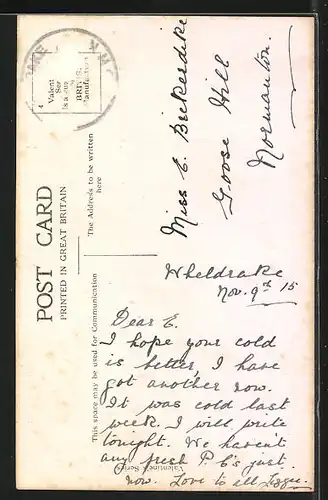 POST CARD
PRINTED IN GREAT BRITAIN
This space may be used for Communication
The Address to be written
here
Valentine Series
Miss E. Birkerdike
Goose Hill
Normanton.
Wheldrake
Nov. 9th 15
Dear E.
I hope your cold
is better, I have
got another now.
It was cold last
week. I will write
tonight. We haven't
any fresh P. C's just
now. Love to all Lizzie.